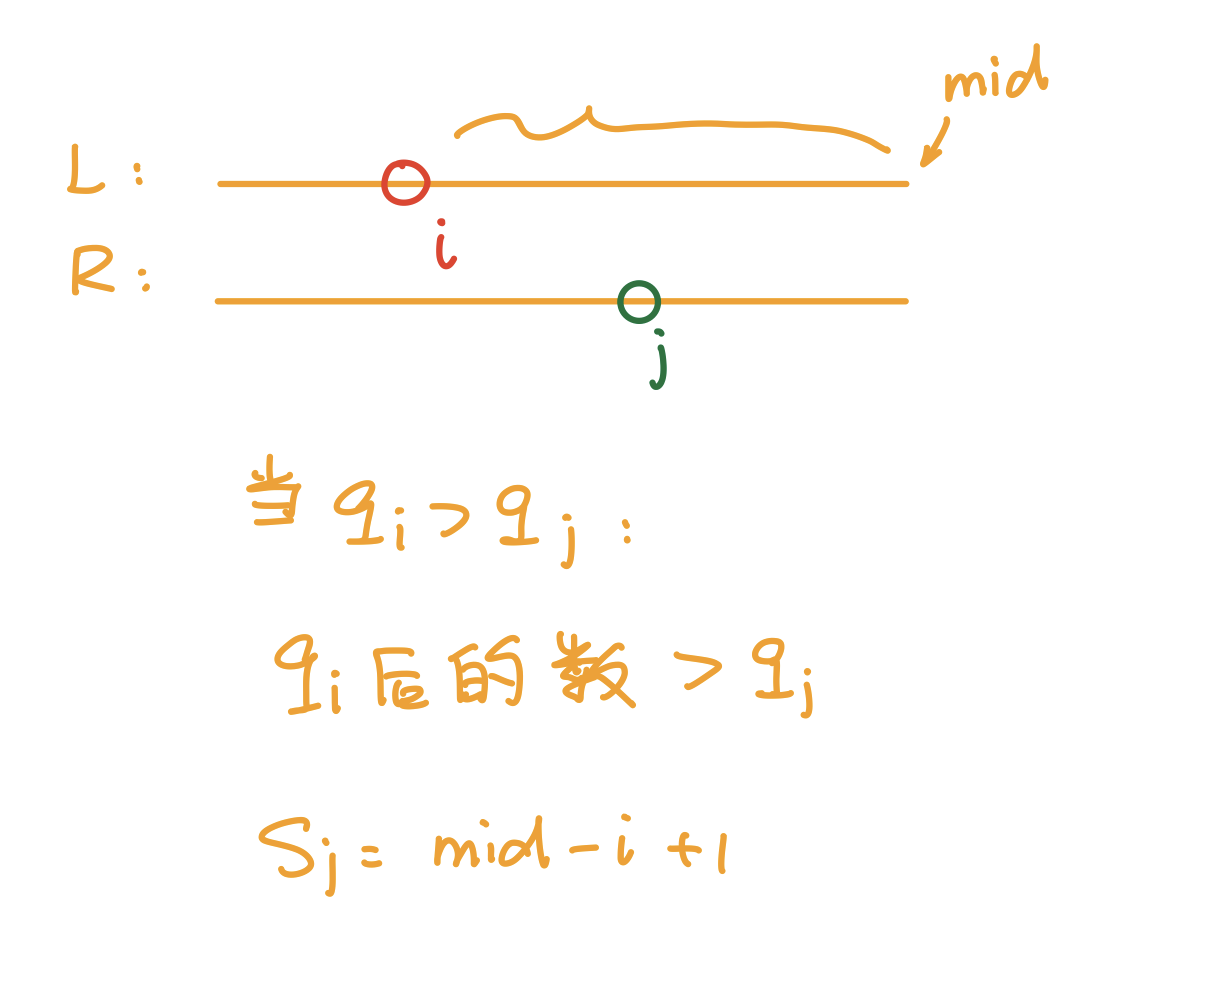 mid
L:
i
R:
j
当 qi > qj :
qi 后的数 > qj
Sj = mid - i + 1